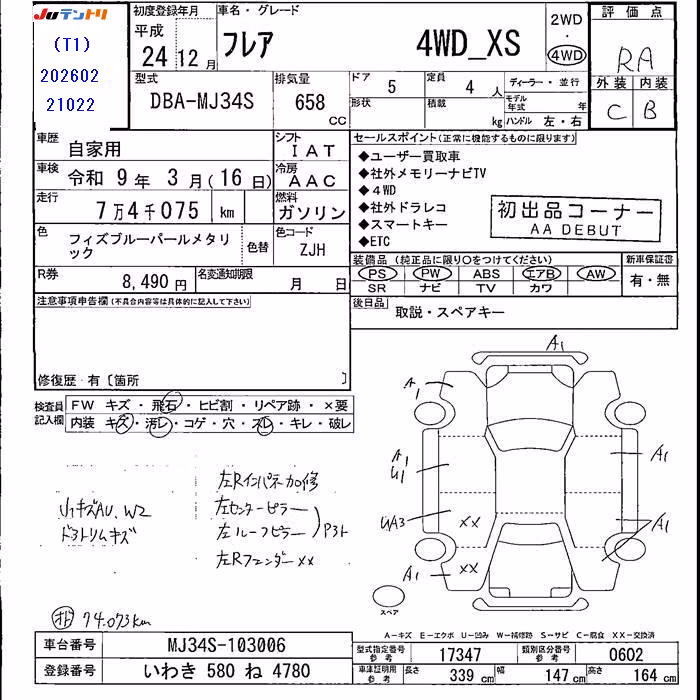 Juテントリ
(T1)
202602
21022
初度登録年月
平成
24 12 月
車名・グレード
フレア 4WD_XS
2WD
・
4WD
評価点
RA
外装 内装
C B
型式
DBA-MJ34S
排気量
658
CC
ドア 5
定員 4 人
形状
積載 kg
ディーラー・並行
モデル年式 年
ハンドル 左・右
車歴 自家用
シフト IAT
車検 令和 9 年 3 月 (16 日)
冷房 AAC
走行 7万4千075 km
燃料 ガソリン
色 フィズブルーパールメタリック
色替
色コード ZJH
R券 8,490 円
名変通知期限 月 日
セールスポイント(正常に機能するものに限ります)
◆ユーザー買取車
◆社外メモリーナビTV
◆4WD
◆社外ドラレコ
◆スマートキー
◆ETC
初出品コーナー
AA DEBUT
装備品 (純正品に限り○をつけてください)
PS PW ABS エアB AW
SR ナビ TV カワ
新車保証書
有・無
後日品 取説・スペアキー
注意事項申告欄(不具合内容等は具体的に記入して下さい)
修復歴・有〔箇所 〕
検査員記入欄
FW キズ・飛石・ヒビ割・リペア跡・×要
内装 キズ・汚レ・コゲ・穴・スレ・キレ・破レ
ドアトリムキズ
左Rインパネ加修
左センターピラー
左ルーフピラー
P3ト
左Rフェンダー××
74.073km
A1
A1
A1
U1
UA3
××
××
A1
A1
A1
スペア
A-キズ E-エクボ U-凹み W-補修跡 S-サビ C-腐食 XX-交換済
車台番号 MJ34S-103006
登録番号 いわき 580 ね 4780
型式指定番号 参考 17347
類別区分番号 参考 0602
車庫証明用 参考 長さ 339 cm 幅 147 cm 高さ 164 cm